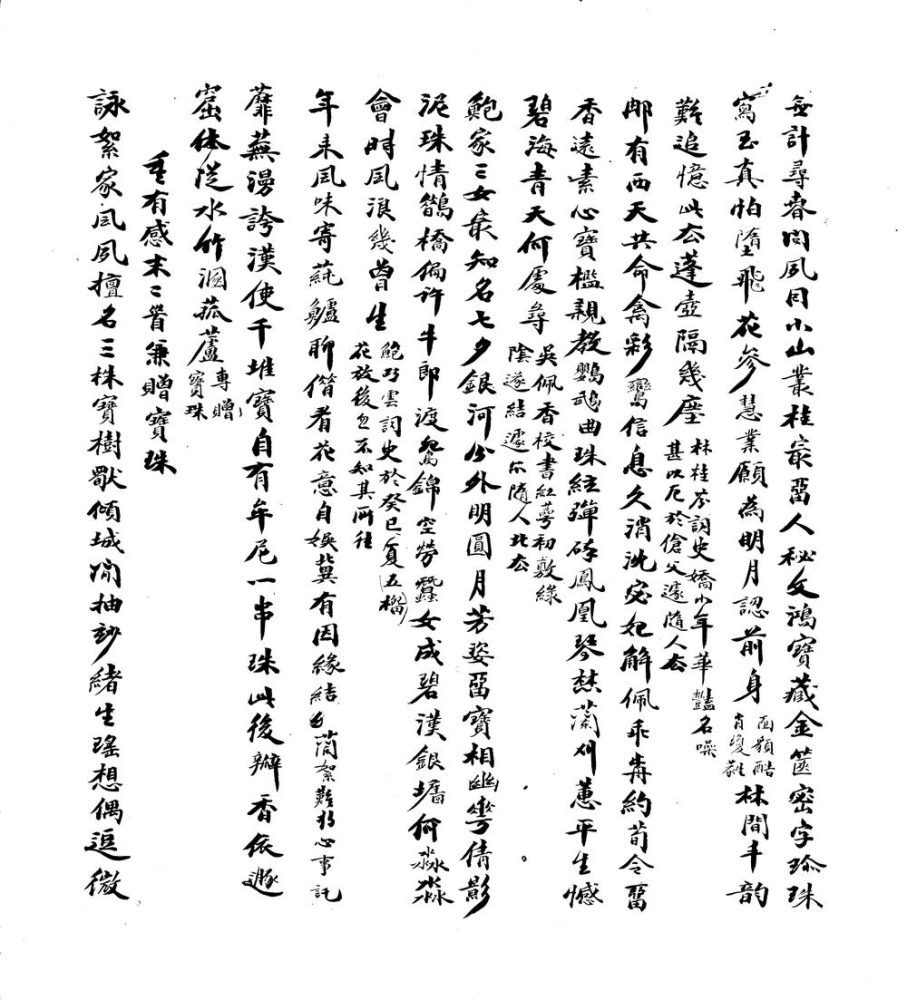 無計尋春問夙因小山叢桂最留人秘文鴻寶藏金篋密字珍珠
寫玉真怕墮飛花參慧業願為明月認前身酷肖林間丰韵
難追憶此去蓬壺隔幾塵林桂芬詞史嬌小年華豔名噪甚以厄於傖父遽隨人去
那有西天共命禽彩鸞信息久消沈宓妃解佩乖前約荀令留
香遠素心寶檻親教鸚鵡曲珠絃彈碎鳳凰琴愁蘭刈蕙平生憾
碧海青天何處尋吳佩香校書紅萼初敷綠陰遂結遽尔隨人北去
鮑家三女最知名七夕銀河分外明圓月芳姿留寶相幽倩影
泥珠情鵲橋偏許牛郎渡鴛錦空勞蠶女成碧漢銀墻何淼淼
會時風浪幾曾生鮑巧雲詞史於癸巳夏五榴花放後忽不知其所往
年來風味寄蒓鱸聊借看花意自娛冀有因緣結蘭絮難將心事託
蘼蕪漫誇漢使千堆寶自有牟尼一串珠此後瓣香依遯
窟体從水竹溷菰蘆專贈寶珠
重有感末二首兼贈寶珠
詠絮家風夙擅名三株寶樹傾城閒抽玅緒生瑤想偶逗微